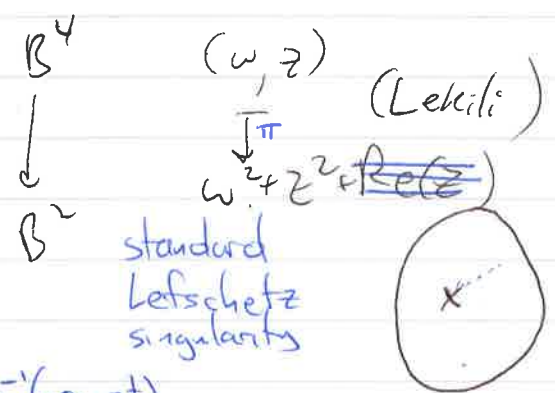 B⁴ (w, z)
(Lekili)
π
B² w² + z² + Re(z)
standard
Lefschetz
singularity
x